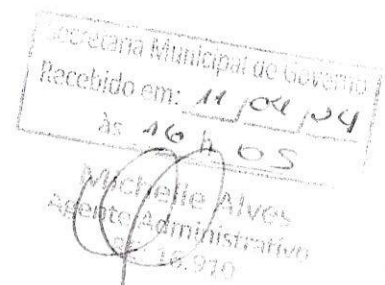 Secretaria Municipal de Governo
Recebido em: 11/04/24
às 16 h 05
Michelle Alves
Agente Administrativo
10.910